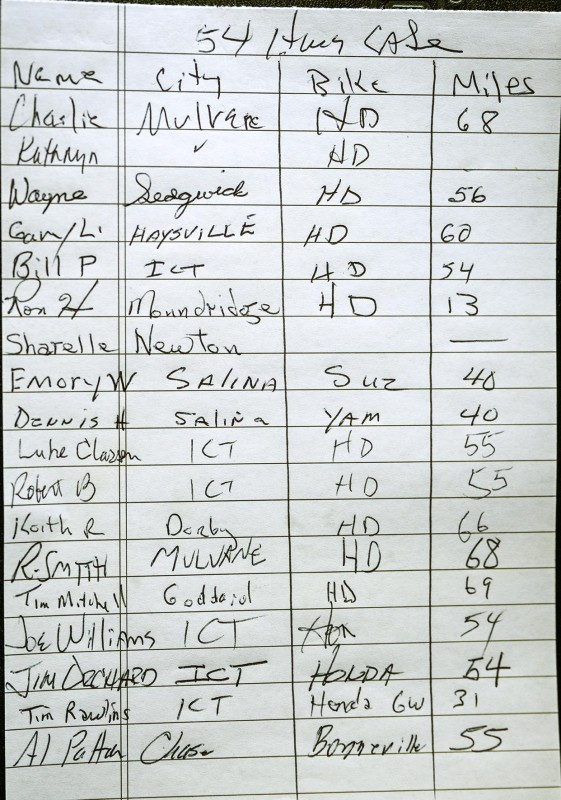 54 CASe
Name City Bike Miles
Charlie Mulvane HD 68
Kathryn ✓ HD
Wayne Sedgwick HD 56
Gary Li HAYSVILLE HD 60
Bill P ICT HD 54
Ron H Moundridge HD 13
Sharelle Newton —
Emory W SALINA Suz 40
Dennis H SALINA YAM 40
Luke Classen ICT HD 55
Robert B ICT HD 55
Keith R Derby HD 66
R. SMITH MULVANE HD 68
Tim Mitchell Goddard HD 69
Joe Williams ICT 54
JIM ORCHARD ICT HONDA 54
Tim Rawlins ICT Honda GW 31
Al Patton Chase Bonneville 55